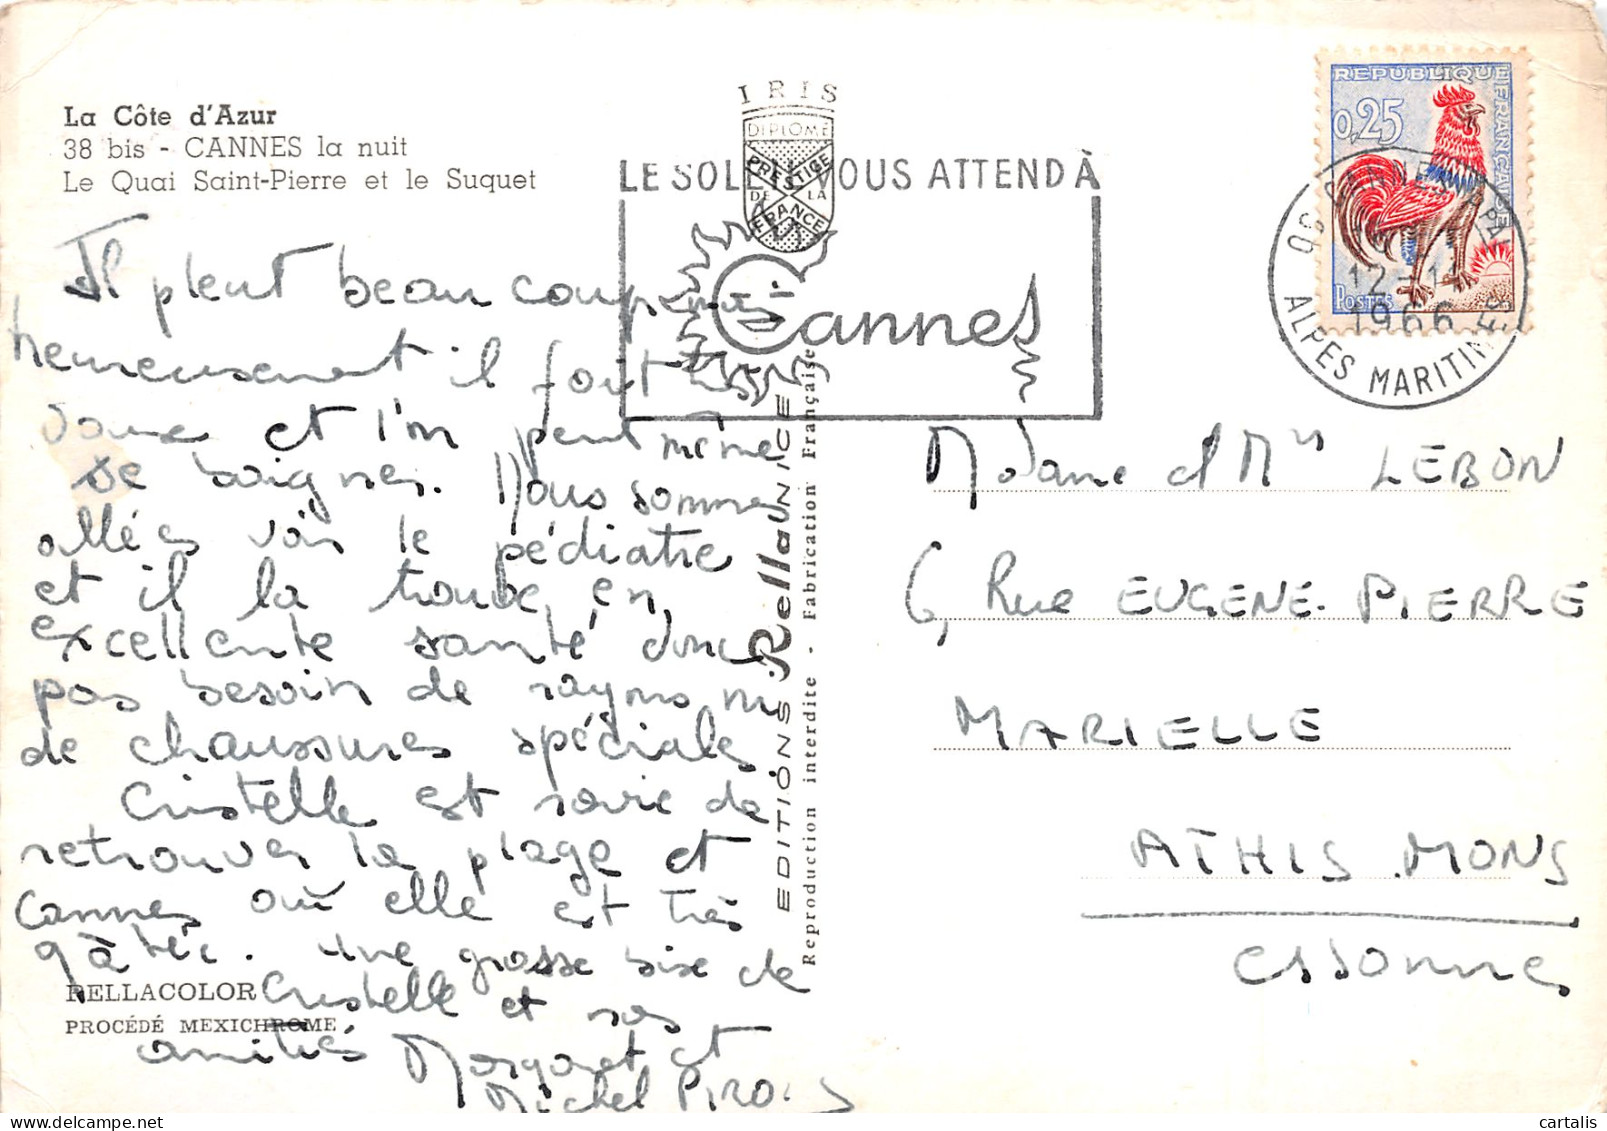 La Côte d'Azur
38 bis - CANNES la nuit
Le Quai Saint-Pierre et le Suquet
IRIS
DIPLOME
PRESTIGE
DE LA
FRANCE
LE SOLEIL VOUS ATTEND À
Cannes
REPUBLIQUE FRANÇAISE
0,25
POSTES
12 - 11
1966
ALPES MARITIMES
Il pleut beaucoup mais
heureusement il fait très
doux et l'on peut même
se baigner. Nous sommes
allées voir le pédiatre
et il la trouve en
excellente santé donc
pas besoin de rayons ni
de chaussures spéciales
Cristelle est ravie de
retrouver la plage et
Cannes où elle est très
gâtée. Une grosse bise de
Cristelle et nos
amitiés Margaret et
Michel
RELLACOLOR
PROCÉDÉ MEXICHROME
EDITIONS Rella NICE
Reproduction interdite - Fabrication Française
Madame et Mr LEBON
6, Rue EUGENE PIERRE
MARIELLE
ATHIS. MONS
Essonnes
cartalis